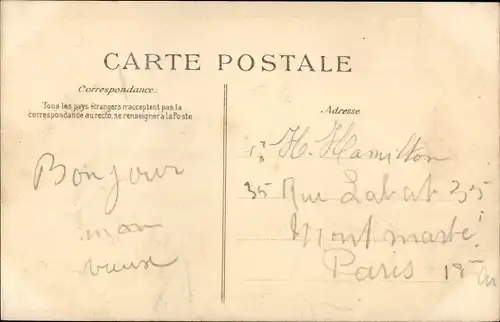 CARTE POSTALE
Correspondance:
Tous les pays étrangers n'acceptent pas la
correspondance au recto, se renseigner à la Poste
Bonjour
mon
vieux
Adresse
H. Hamilton
35 Rue Labat 35
Montmartre
Paris 18e Arr